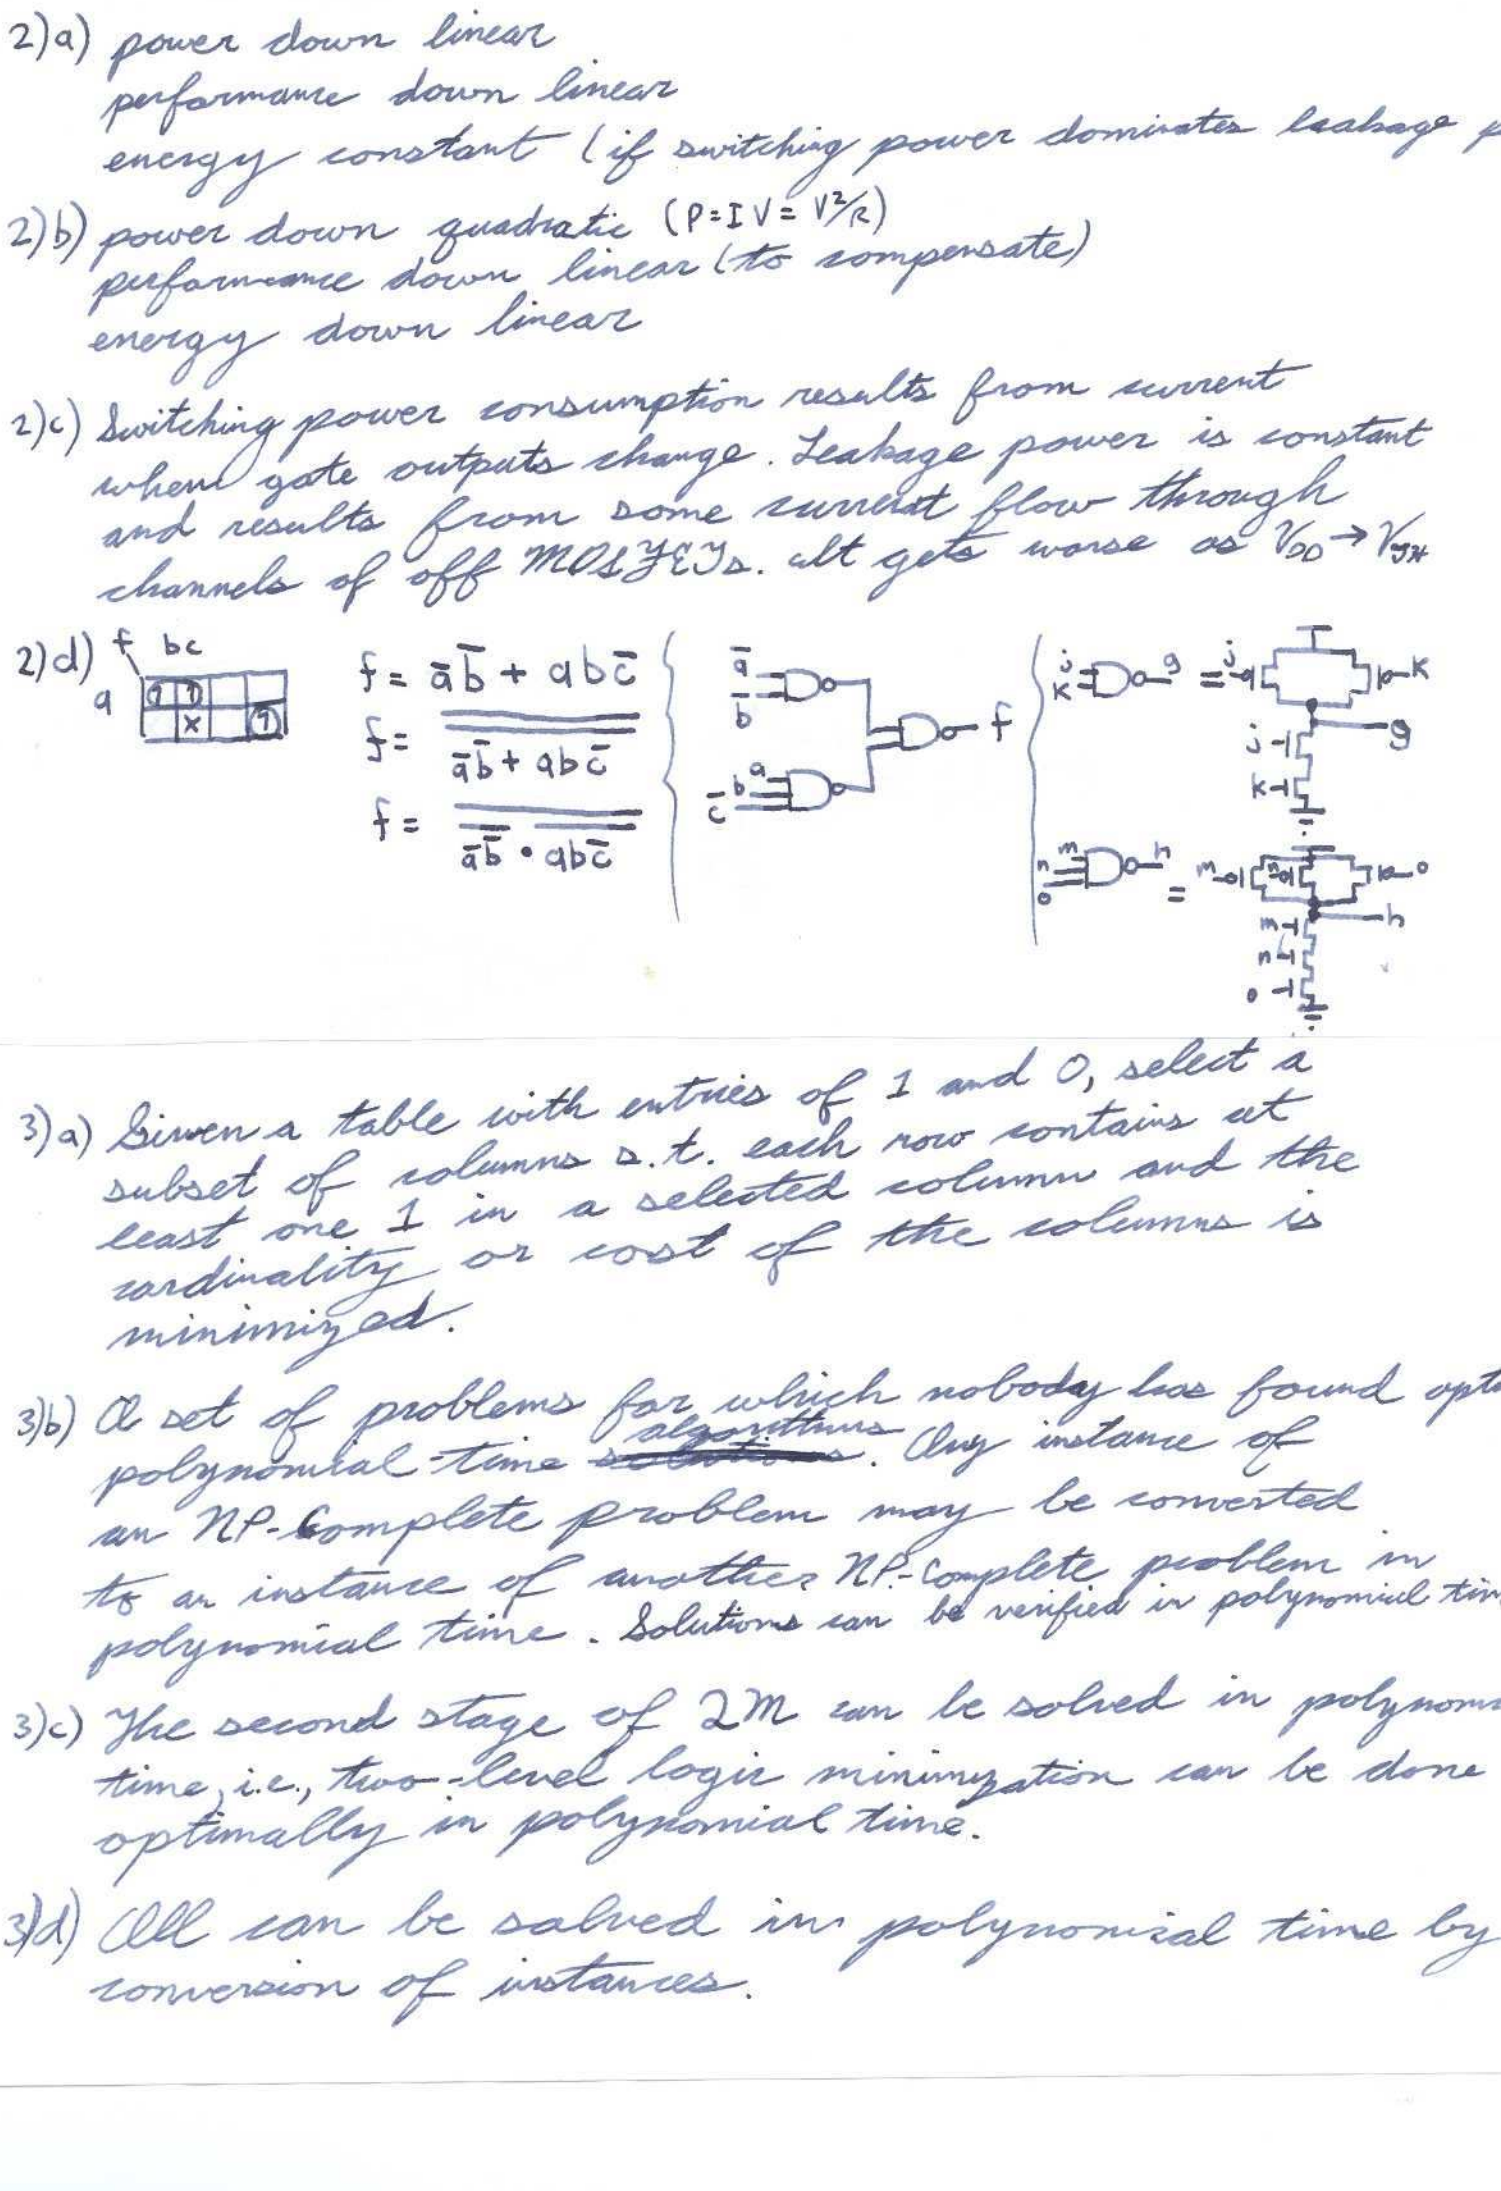 2)a) power down linear
performance down linear
energy constant (if switching power dominates leakage p
2)b) power down quadratic (P=IV=V²/R)
performance down linear (to compensate)
energy down linear
2)c) Switching power consumption results from current
when gate outputs change. Leakage power is constant
and results from some current flow through
channels of off MOSFETs. It gets worse as V_DD → V_TH
2)d) f bc
a 1 1
X 1
f = a̅ b̅ + a b c̅
f = a̅ b̅ + a b c̅
f = a̅ b̅ • a b c̅
a̅
b̅
a
b
c̅
f
j
k
g
=
j
k
g
j
k
m
n
o
h
=
m
n
o
h
m
n
o
3)a) Given a table with entries of 1 and 0, select a
subset of columns s.t. each row contains at
least one 1 in a selected column and the
cardinality or cost of the columns is
minimized.
3)b) A set of problems for which nobody has found opt
polynomial-time algorithms. Any instance of
an NP-Complete problem may be converted
to an instance of another NP-Complete problem in
polynomial time. Solutions can be verified in polynomial tim
3)c) The second stage of QM can be solved in polynom
time, i.e., two-level logic minimization can be done
optimally in polynomial time.
3)d) All can be solved in polynomial time by
conversion of instances.